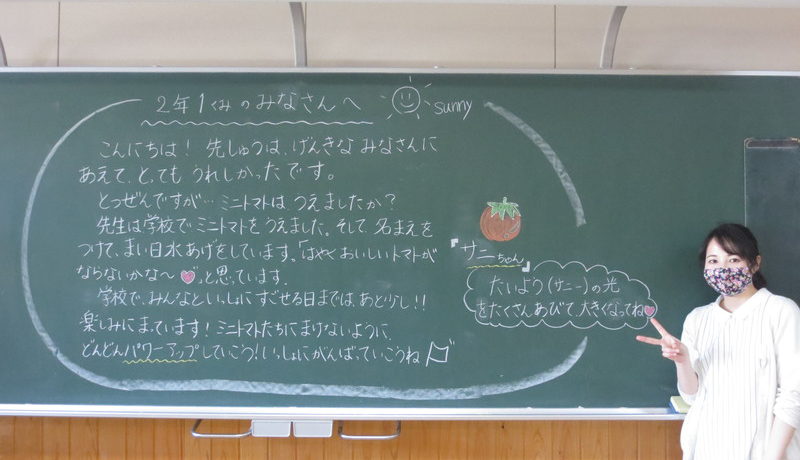 2年1くみのみなさんへ
sunny
こんにちは！ 先しゅうは、げんきなみなさんに
あえて、とっても うれしかったです。
とつぜんですが…ミニトマトは うえましたか？
先生は学校でミニトマトをうえました。そして、名まえを
つけて、まい日水あげをしています。「はやくおいしいトマトが
ならないかな〜♥」と思っています。
学校で、みんなといっしょに すごせる日までは、あと少し！！
楽しみにまっています！ミニトマトたちにまけないように、
どんどんパワーアップしていこう！いっしょにがんばっていこうね
『サニーちゃん』
たいよう(サニー)の光
をたくさんあびて、大きくなってね♥